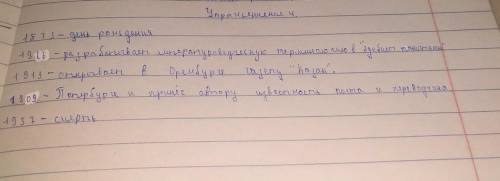 Упражнение 4.
1873 - день рождения
1926 - разрабатывает литературоведческую терминологию в "Эдебиет танытқыш"
1913 - открывает в Оренбурге газету "Казак".
1909 - Петербурге и принёс автору известность поэта и переводчика
1937 - смерть